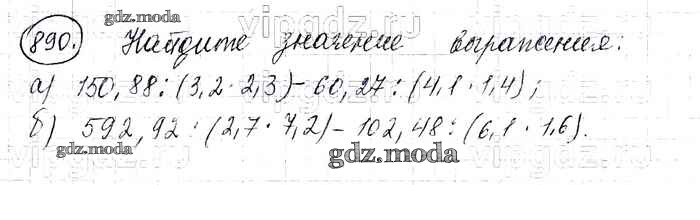 890. Найдите значение выражения:
а) 150,88 : (3,2 · 2,3) - 60,27 : (4,1 · 1,4);
б) 592,92 : (2,7 · 7,2) - 102,48 : (6,1 · 1,6).
gdz.moda
gdz.moda
gdz.moda
gdz.moda
vipgdz.moda